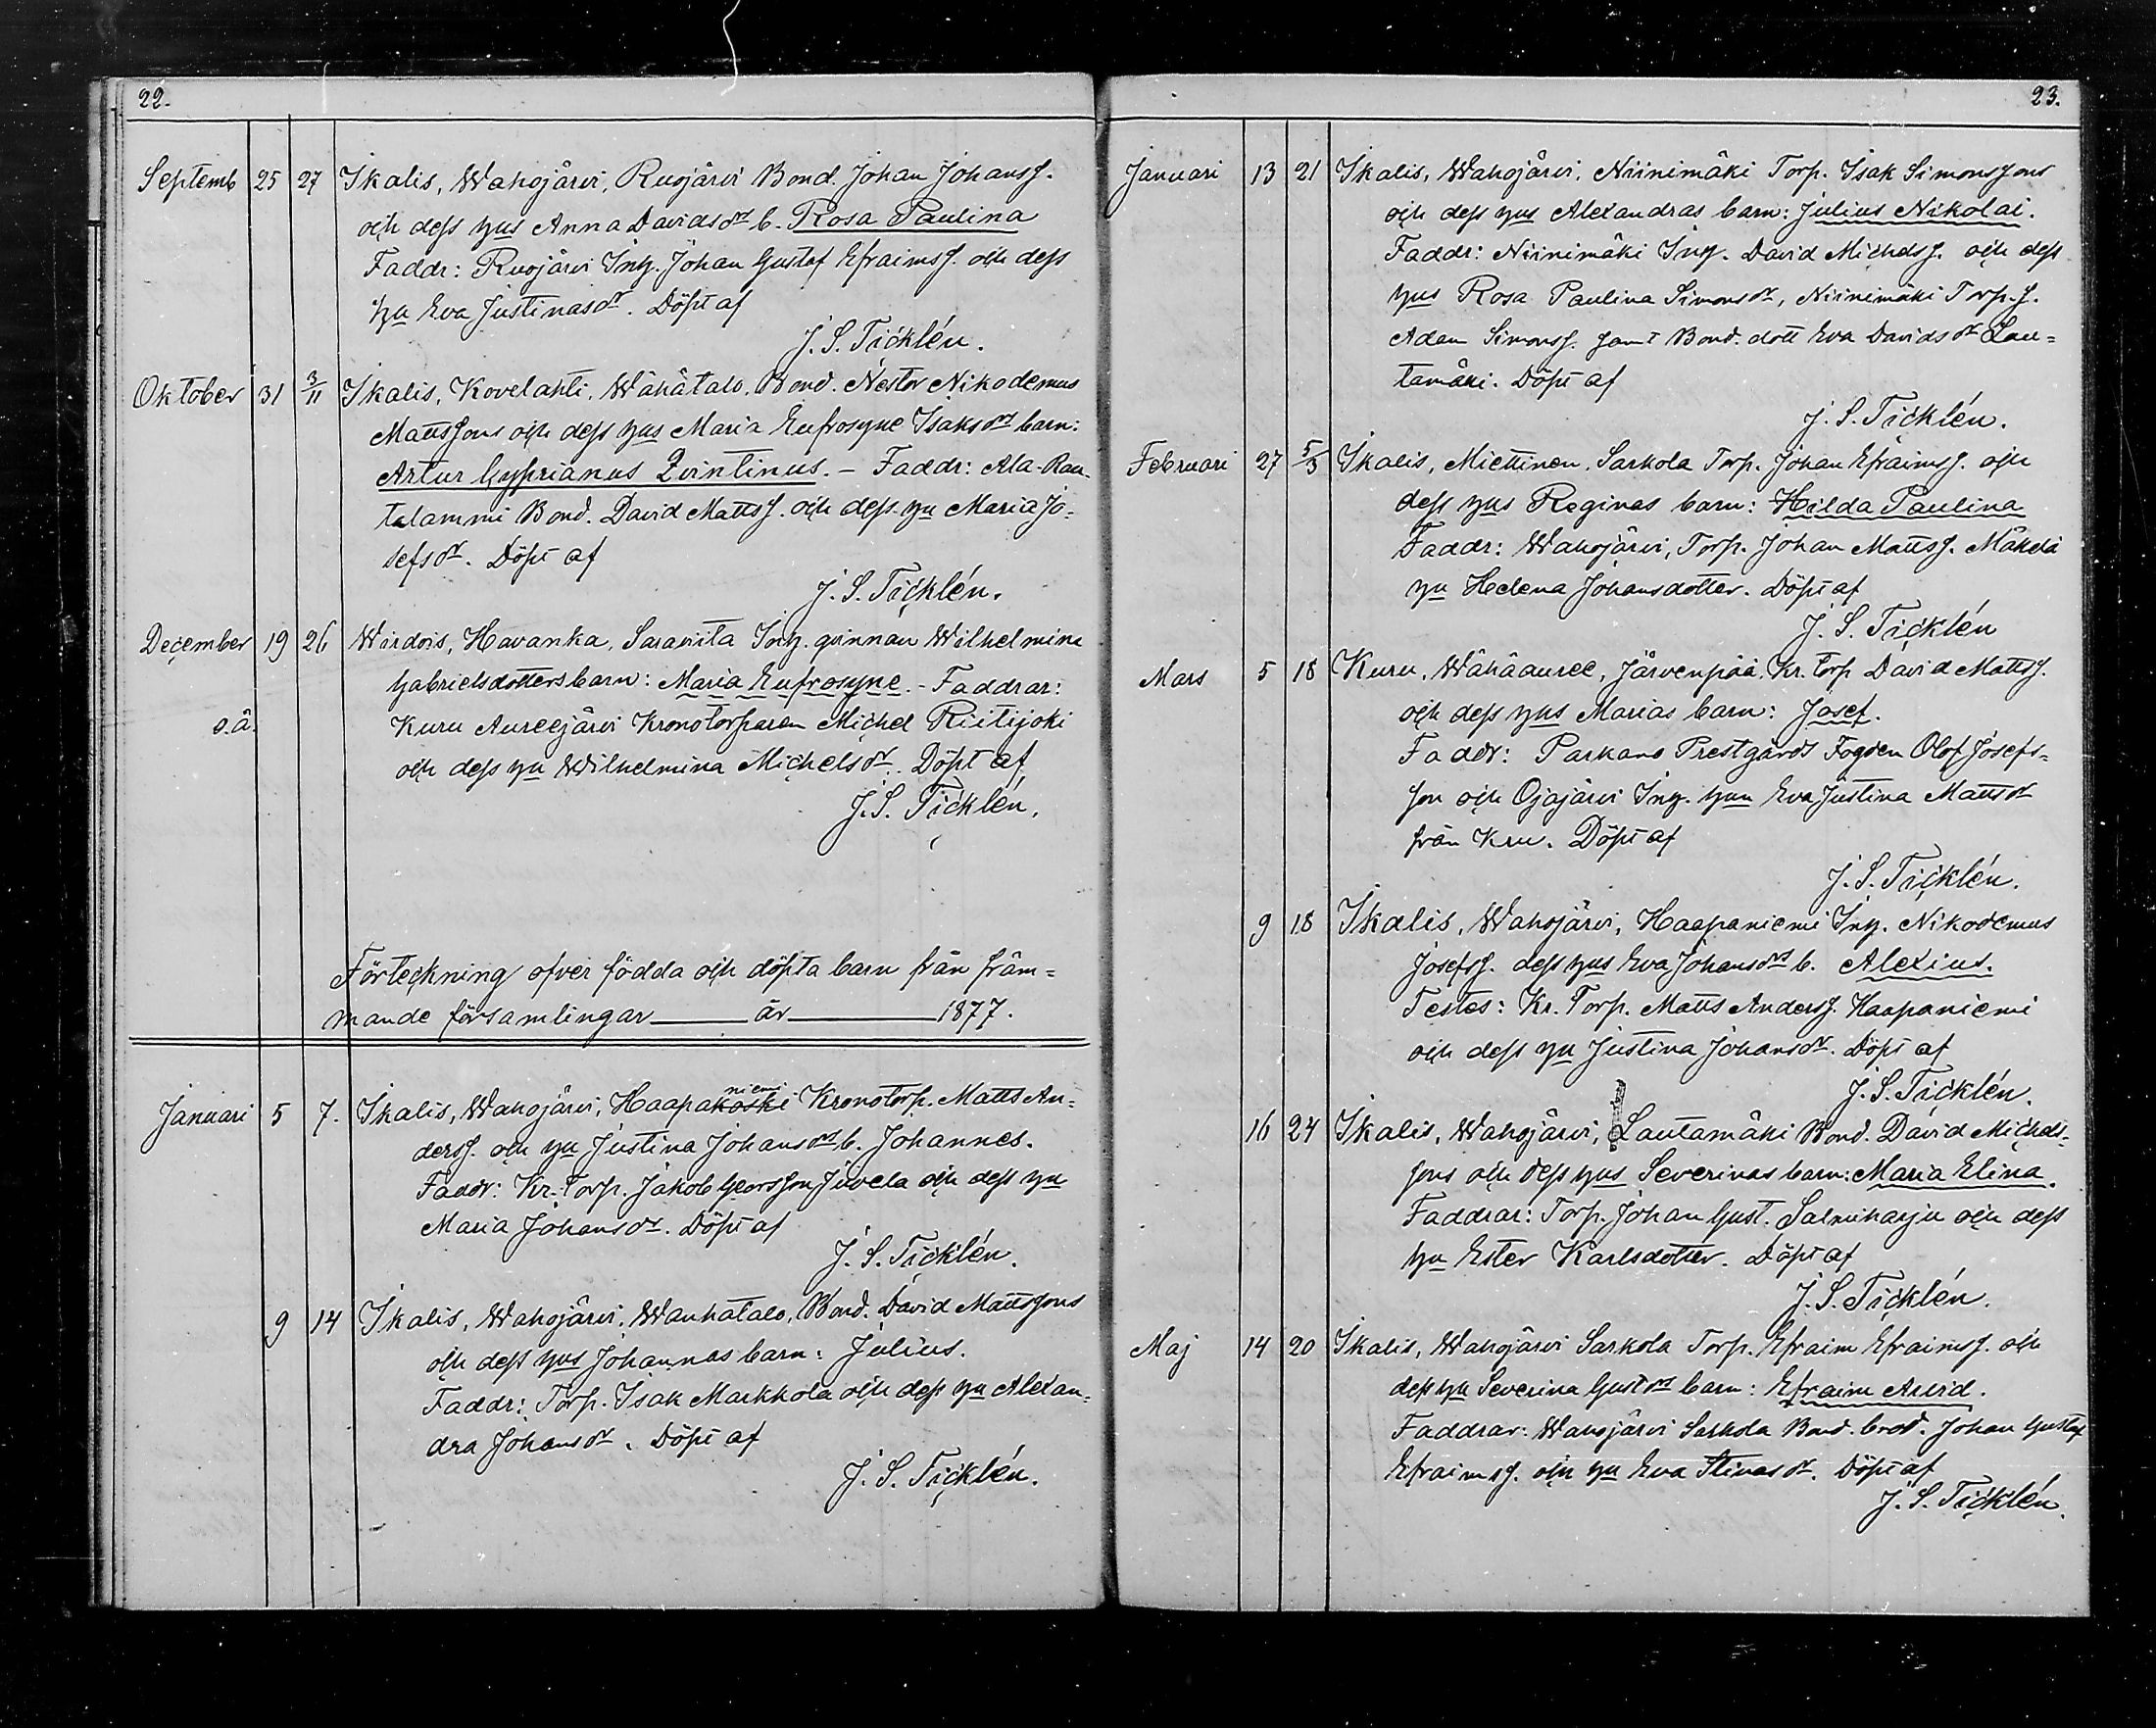 22.
Septemb 25 27 Ikalis, Wahojärvi, Ruojärvi Bond. Johan Johanss.
och dess hus Anna Davidsdr b. Rosa Paulina
Faddr: Ruojärvi Inh. Johan Gustaf Efraimss. och dess
hu Eva Justinasdr. Döpt af
J. S. Ticklén.
Oktober 31 3/11 Ikalis, Kovelahti, Wähätalo, Bond. Nestor Nikodemus
Mattssons och dess hus Maria Eufrosyne Isaksdrs barn:
Artur Cyprianus Qvintinus. – Faddr: Ala-Rau-
talammi Bond. David Mattss. och dess hu Maria Jo-
sefsdr. Döpt af
J. S. Ticklén.
December 19 26 Wirdois, Havanka, Saraviita Inh. qvinnan Wilhelmina
Gabrielsdotters barn: Maria Eufrosyne. – Faddrar:
o.ä. Kuru Aureejärvi Kronotorparen Michel Riitijoki
och dess hu Wilhelmina Michelsdr. Döpt af
J. S. Ticklén.
Förteckning öfver födda och döpta barn från främ=
mande församlingar år 1877.
Januari 5 7. Ikalis, Wahojärvi, Haapakoski niemi Kronotorp. Matts An=
derss. och hu Justina Johansdrs b. Johannes.
Faddr: Kr. Torp. Jakob Georsson Juvela och dess hu
Maria Johansdr. Döpt af
J. S. Ticklén.
9 14 Ikalis, Wahojärvi, Wanhatalo, Bond. David Mattssons
och dess hus Johannas barn: Julius.
Faddr: Torp. Isak Markkola och dess hu Alexan=
dra Johansdr. Döpt af
J. S. Ticklén.
23.
Januari 13 21 Ikalis, Wahojärvi, Niinimäki Torp. Isak Simonssons
och dess hus Alexandras barn: Julius Nikolai.
Faddr: Niinimäki Inh. David Michelss. och dess
hus Rosa Paulina Simonsdr, Niinimäki Torp. s.
Adam Simonss. samt Bond. dott Eva Davidsdr Lau=
tamäki. Döpt af
J. S. Ticklén.
Februari 27 5/3 Ikalis, Miettinen, Sarkola Torp. Johan Efraimss. och
dess hus Reginas barn: Hilda Paulina
Faddr: Wahojärvi, Torp. Johan Mattss. Mäkelä
hu Helena Johansdotter. Döpt af
J. S. Ticklén
Mars 5 18 Kuru, Wähäauree, Järvenpää, Kr. Torp David Mattss.
och dess hus Marias barn: Josef.
Faddr: Parkano Prestgårds Fogden Olof Josefs=
son och Ojajärvi Inh. hun Eva Justina Mattsdr
från Kru. Döpt af
J. S. Ticklén.
9 18 Ikalis, Wahojärvi, Haapaniemi Inh. Nikodemus
Josefss. dess hus Eva Johansdrs b. Alexius.
Testes: Kr. Torp. Matts Anderss. Haapaniemi
och dess hu Justina Johansdr. Döpt af
J. S. Ticklén.
16 24 Ikalis, Wahojärvi, Lautamäki Bond. David Michels-
sons och dess hus Severinas barn: Maria Elina.
Faddrar: Torp. Johan Gust. Salmiharju och dess
hu Ester Karlsdotter. Döpt af
J. S. Ticklén.
Maj 14 20 Ikalis, Wahojärvi Sarkola Torp. Efraim Efraimss. och
dess hu Severina Gustdrs barn: Efraim Arvid.
Faddrar: Wahojärvi Sarkola Bond. brod. Johan Gustaf
Efraimss. och hu Eva Stinasdr. Döpt af
J. S. Ticklén.